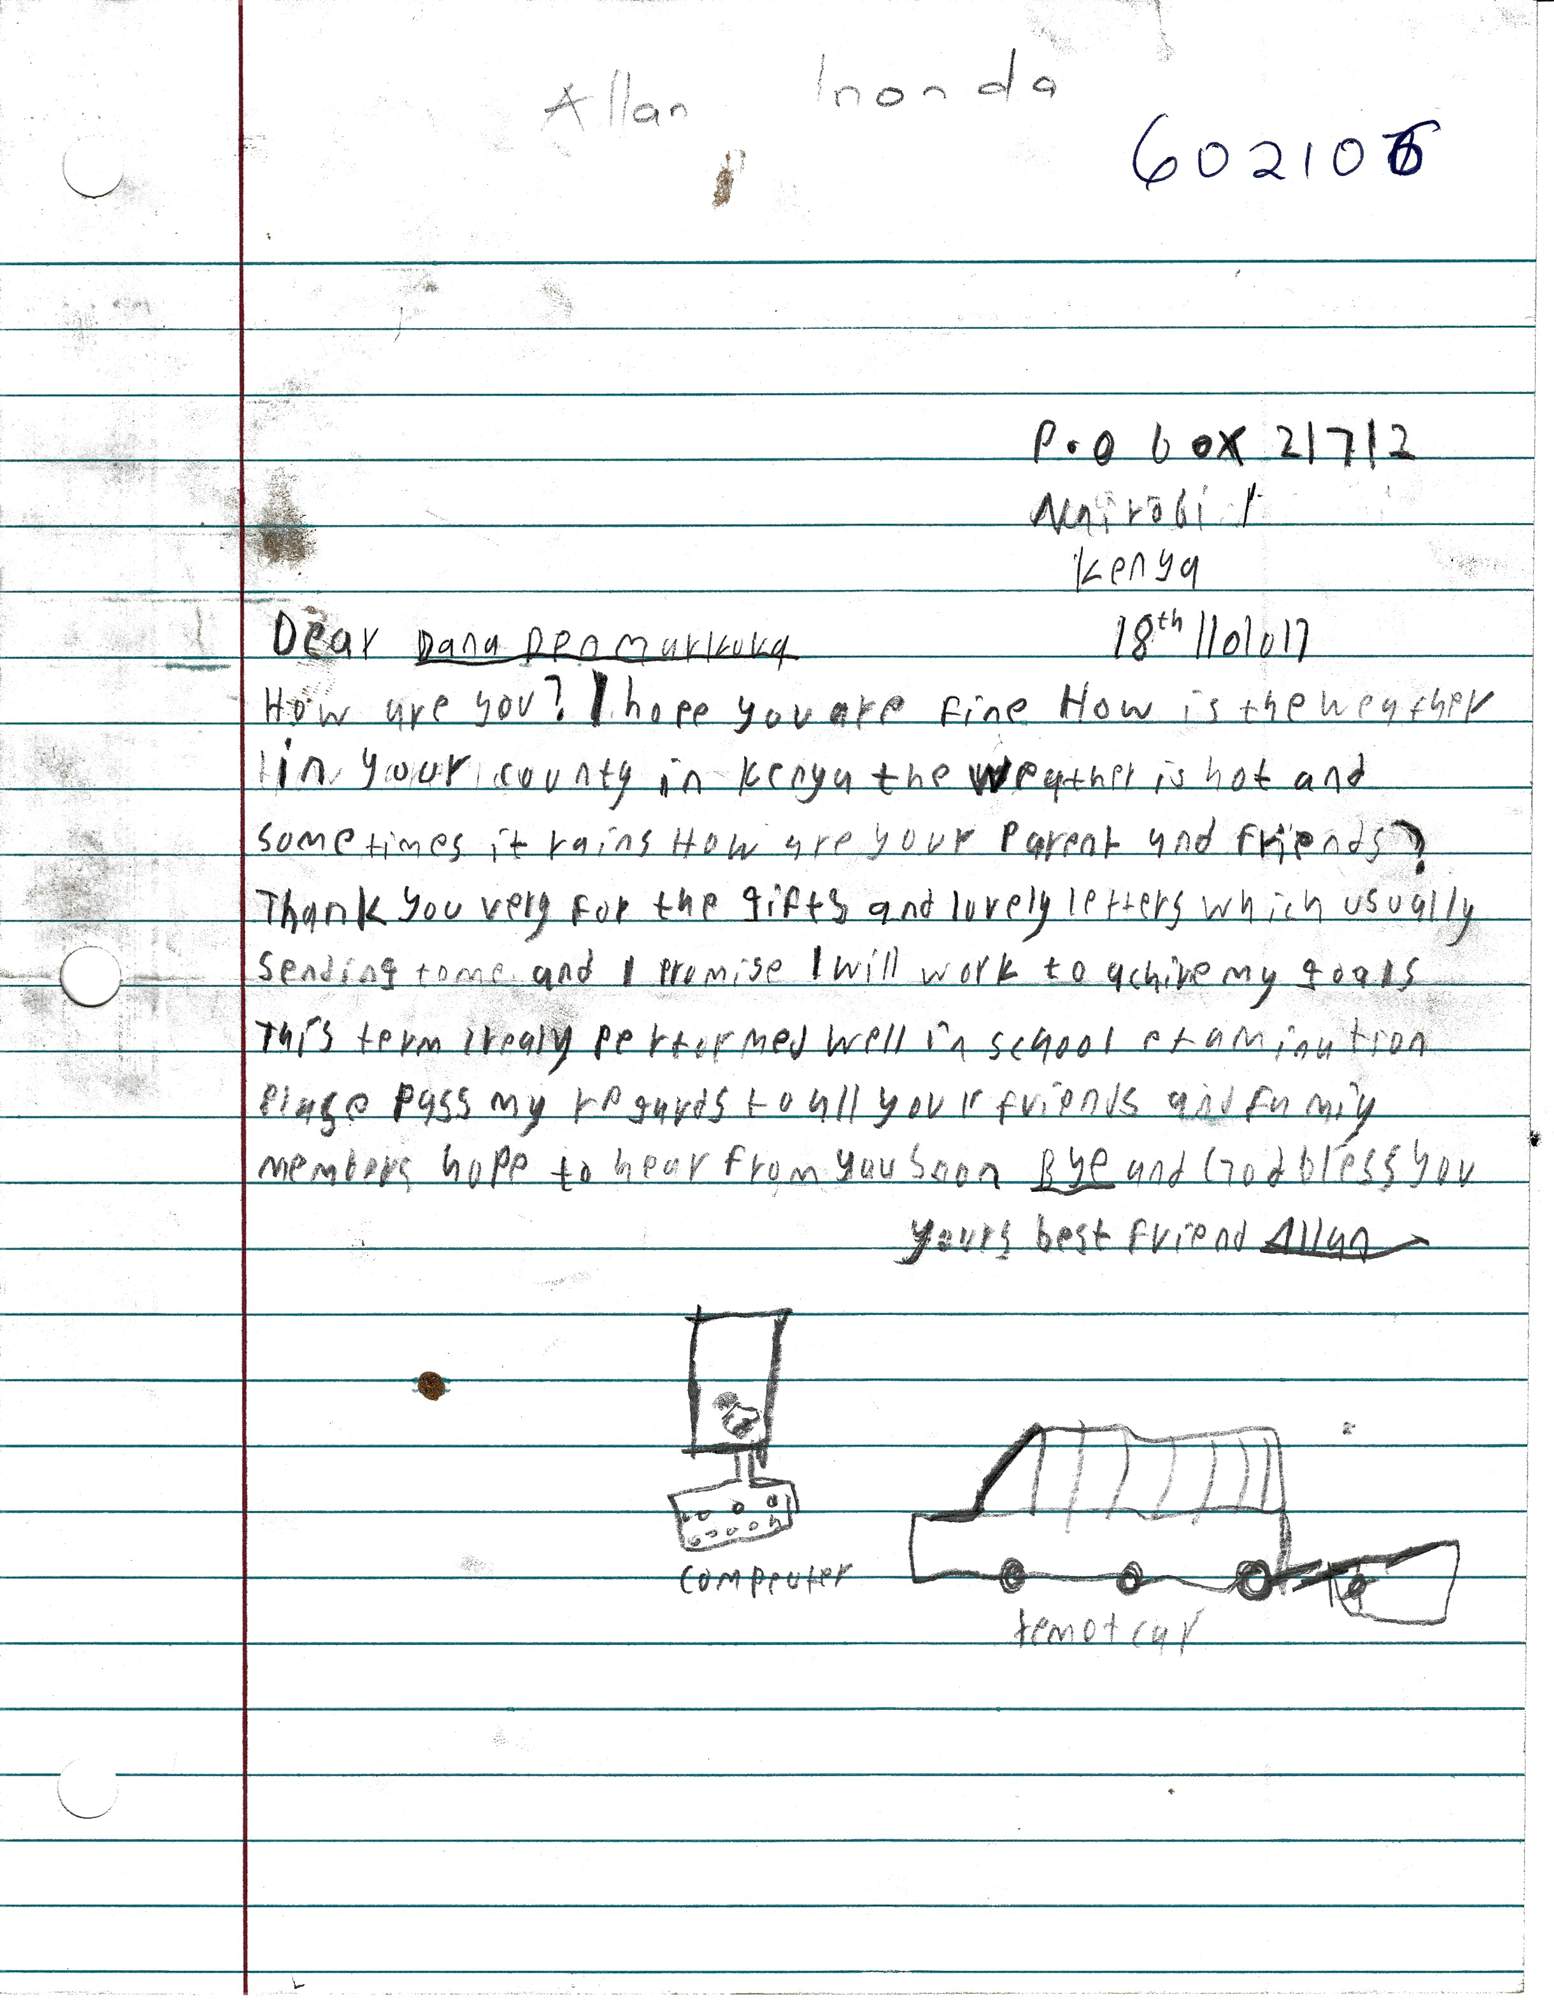 Allan Inonda
602106
P.O box 21712
Nairobi
Kenya
Dear Dana Denmarkuka
18th
How are you? I hope you are fine How is the weather
in your county in kenya the weather is hot and
sometimes it rains How are your Parent and friends?
Thank you very for the gifts and lovely letters which usually
sending to me and I promise I will work to achive my goals
This term I realy performed well in school examination
Plase pass my regards to all your friends and famiy
members hope to hear from you soon Bye and God bless you
yours best friend Allan
compeuter
remot car